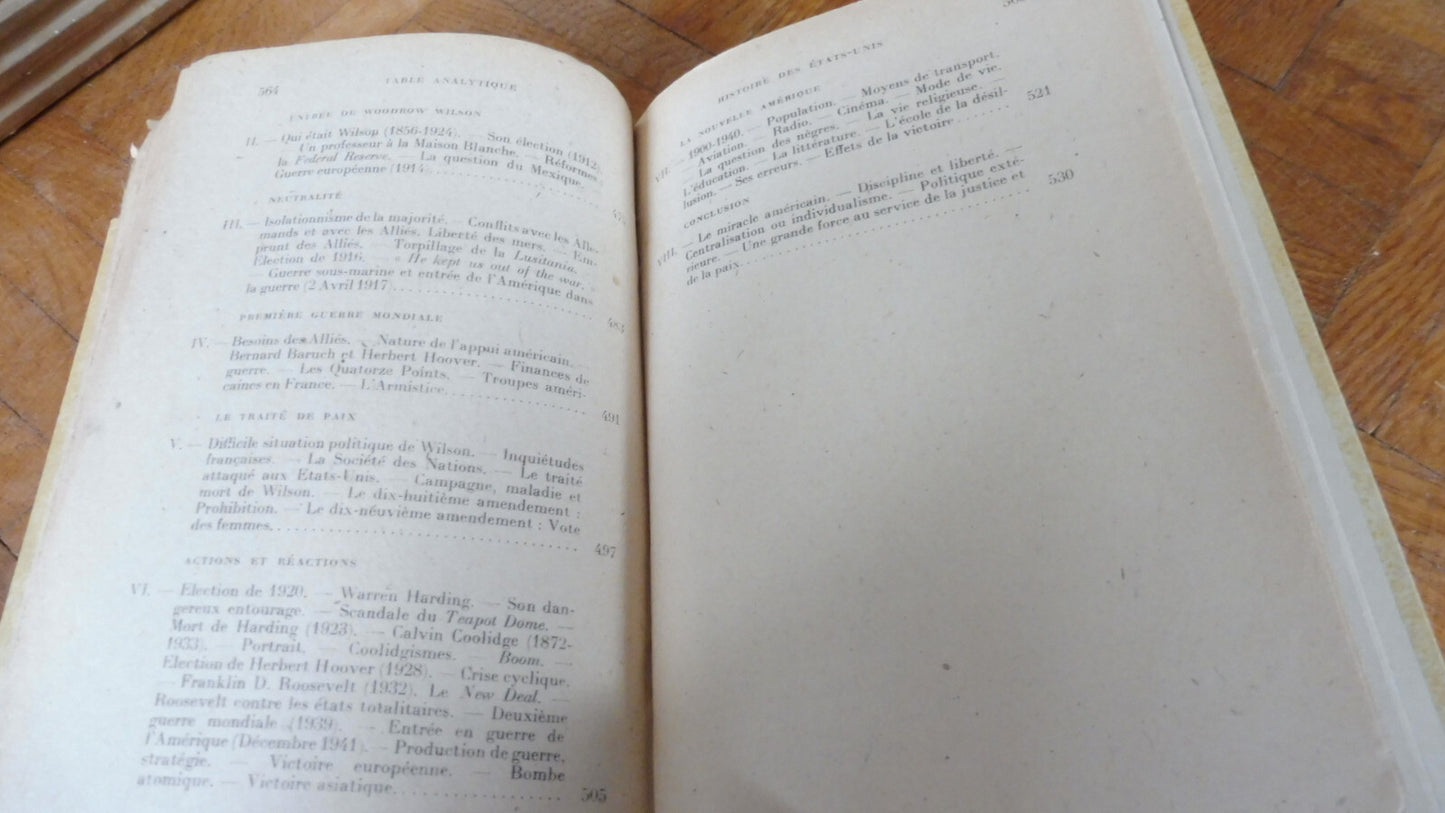 564
TABLE ANALYTIQUE
ENTRÉE DE WOODROW WILSON
II. — Qui était Wilson (1856-1924). — Son élection (1912)
Un professeur à la Maison Blanche. — Réformes
la Federal Reserve. — La question du Mexique
Guerre européenne (1914
NEUTRALITÉ
III. — Isolationnisme de la majorité. — Conflits avec les Alle-
mands et avec les Alliés. Liberté des mers. — Em-
prunt des Alliés. — Torpillage de la Lusitania. —
Élection de 1916. — « He kept us out of the war. »
— Guerre sous-marine et entrée de l'Amérique dans
la guerre (2 Avril 1917
483
PREMIÈRE GUERRE MONDIALE
IV. — Besoins des Alliés. — Nature de l'appui américain.
Bernard Baruch et Herbert Hoover. — Finances de
guerre. — Les Quatorze Points. — Troupes améri-
caines en France. — L'Armistice
491
LE TRAITÉ DE PAIX
V. — Difficile situation politique de Wilson. — Inquiétudes
françaises. — La Société des Nations. — Le traité
attaqué aux Etats-Unis. — Campagne, maladie et
mort de Wilson. — Le dix-huitième amendement :
Prohibition. — Le dix-neuvième amendement : Vote
des femmes. 497
ACTIONS ET RÉACTIONS
VI. — Election de 1920. — Warren Harding. — Son dan-
gereux entourage. — Scandale du Teapot Dome. —
Mort de Harding (1923). — Calvin Coolidge (1872-
1933). — Portrait. — Coolidgismes. — Boom. —
Election de Herbert Hoover (1928). — Crise cyclique.
— Franklin D. Roosevelt (1932). Le New Deal. —
Roosevelt contre les états totalitaires. — Deuxième
guerre mondiale (1939). — Entrée en guerre de
l'Amérique (Décembre 1941). — Production de guerre,
stratégie. — Victoire européenne. — Bombe
atomique. — Victoire asiatique. 505
HISTOIRE DES ÉTATS-UNIS
LA NOUVELLE AMÉRIQUE
VII. — 1900-1940. — Population. — Moyens de transport.
Aviation. — Radio. — Cinéma. — Mode de vie.
— La question des nègres. — La vie religieuse. —
L'éducation. — La littérature. — L'école de la désil-
lusion. — Ses erreurs. — Effets de la victoire 521
CONCLUSION
VIII. — Le miracle américain. — Discipline et liberté. —
Centralisation ou individualisme. — Politique exté-
rieure. — Une grande force au service de la justice et
de la paix. 530